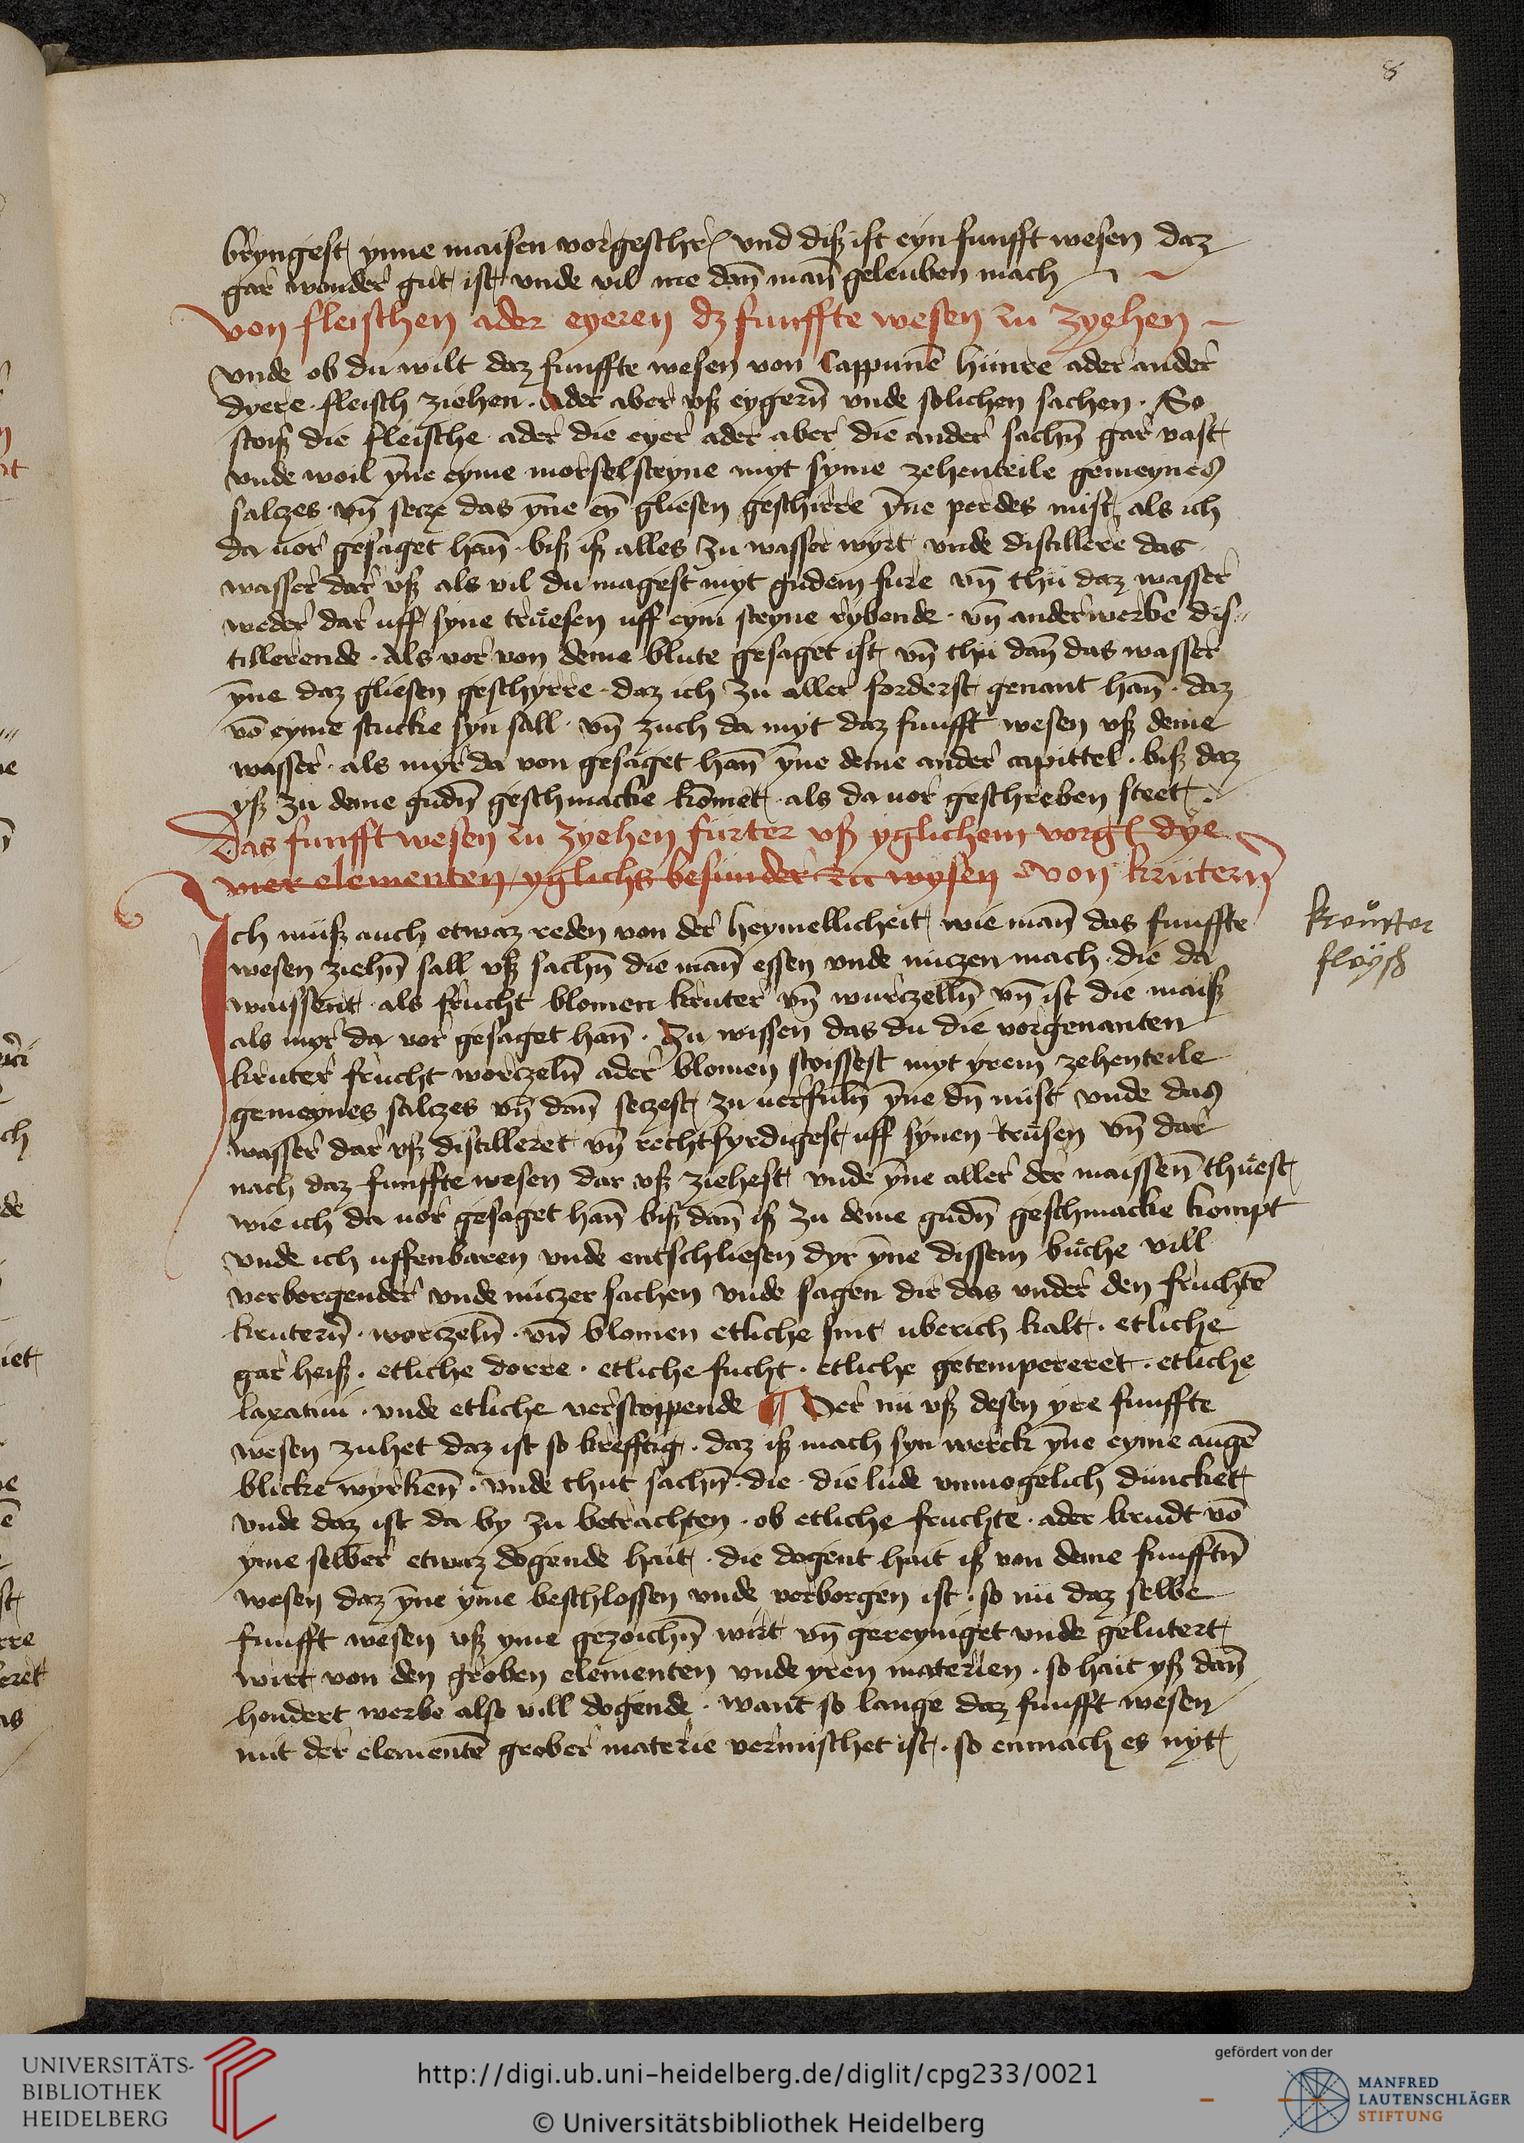 8
bryngest ynne maisen vorgeschr~ vnd diß ist eyn funfft wesen daz
gar wonder gut ist vnde vil me dan̄ man̄ geleuben mach
von fleischen ader eyeren dz funffte wesen zu zyehen
vnde ob du wilt daz funffte wesen von Cappunē hünre ader ander
dyere fleisch ziehen . Ader aber vß eygern̄ vnde solichen sachen . So
stoiß die fleische ader die eyer ader aber die ander sachn̄ gar vast
vnde woil ȳne eyme morselsteyne myt syme zehenteile gemeynes
salczes vn̄ secze das ȳne eȳ gliesen geschirre ȳne perdes mist als ich
da uor gesaget han̄ . biß iß alles zu wasser wyrt vnde distillere das
wasser dar vß als vil du magest myt gudem fure vn̄ thü daz wasser
weder dar uff syne truesen uff eym steyne rybende . vn̄ anderwerbe dis=
tillerende . Als vor von deme blute gesaget ist vn̄ thu dan̄ das wasser
ȳne daz gliesen geschyrre . daz ich zu aller forderst genant han̄ . daz
vō eyme stucke syn sall . vn̄ zuch da myt daz funfft wesen vß deme
wasser . als myr da von gesaget han̄ ȳne deme ander capittel . biß daz
yß zu deme gudn̄ geschmacke kōmet . als da uor geschreben steet .
Das funfft wesen zu zyehen fürter vß yglichem vorg~ dye
vier elementen yglichs besunder zu wysen von krütern̄
Ich müß auch etwaz reden von der heymellicheit wie man̄ das funffte
wesen ziehn̄ sall vß sachn̄ die man̄ essen vnde nüczen mach . die da
waissent . als frucht blomen kruter vn̄ wurczelln̄ vn̄ ist die maiß
als myr da vor gesaget han̄ . Zu wissen das du die vorgenanten
kruter frucht worczeln̄ ader blomen stoissest myt yrem zehenteile
gemeynes salczes vn̄ dan̄ seczest zu uerfuln̄ ȳne dn̄ mist vnde das
wasser dar vß distilleret vn̄ rechtfyrdigest uff synen trusen vn̄ dar
nach daz funffte wesen dar vß ziehest vnde ȳne aller der maissen̄ thuest
wie ich da uor gesaget han̄ biß dan̄ iß zu deme gudn̄ geschmacke kompt
vnde ich uffenbaren vnde entschliesen dyr ȳne dissem buche vill
verborgender vnde nüczer sachen vnde sagen dir das vnder den fruchtē
krutern̄ . worczeln̄ . vn̄ blomen etliche sint uberich kalt . etliche
gar heiß . etliche dorre . etliche fucht . etliche getempereret . etliche
laxatiui . vnde etliche verstoppende ¶ Der nü vß desen yre funffte
wesen zuhet daz ist so krefftig . daz iß mach syn werck ȳne eyme augē
blicke wyrken̄ . vnde thut sachn̄ . die . die lude vnmogelich duncket
vnde daz ist da by zu betrachten . ob etliche fruchte . ader krudt vō
yme selber etwaz dogende hait . die dogent hait iß von deme funfftn̄
wesen daz ȳne yme beschlossen vnde verborgen ist . so nü daz selbe
funfft wesen vß yme gezoichn̄ wirt vn̄ gereyniget vnde gelutert
wirt von den groben elementen vnde yren materien . so hait yß dan̄
hondert werbe also vill dogende . want so lange daz funfft wesen
mit der elementē grober materie vermischet ist . so enmach es nyt
kreutter
fleysch
UNIVERSITÄTS-
BIBLIOTHEK
HEIDELBERG
http://digi.ub.uni-heidelberg.de/diglit/cpg233/0021
© Universitätsbibliothek Heidelberg
gefördert von der
MANFRED
LAUTENSCHLÄGER
STIFTUNG